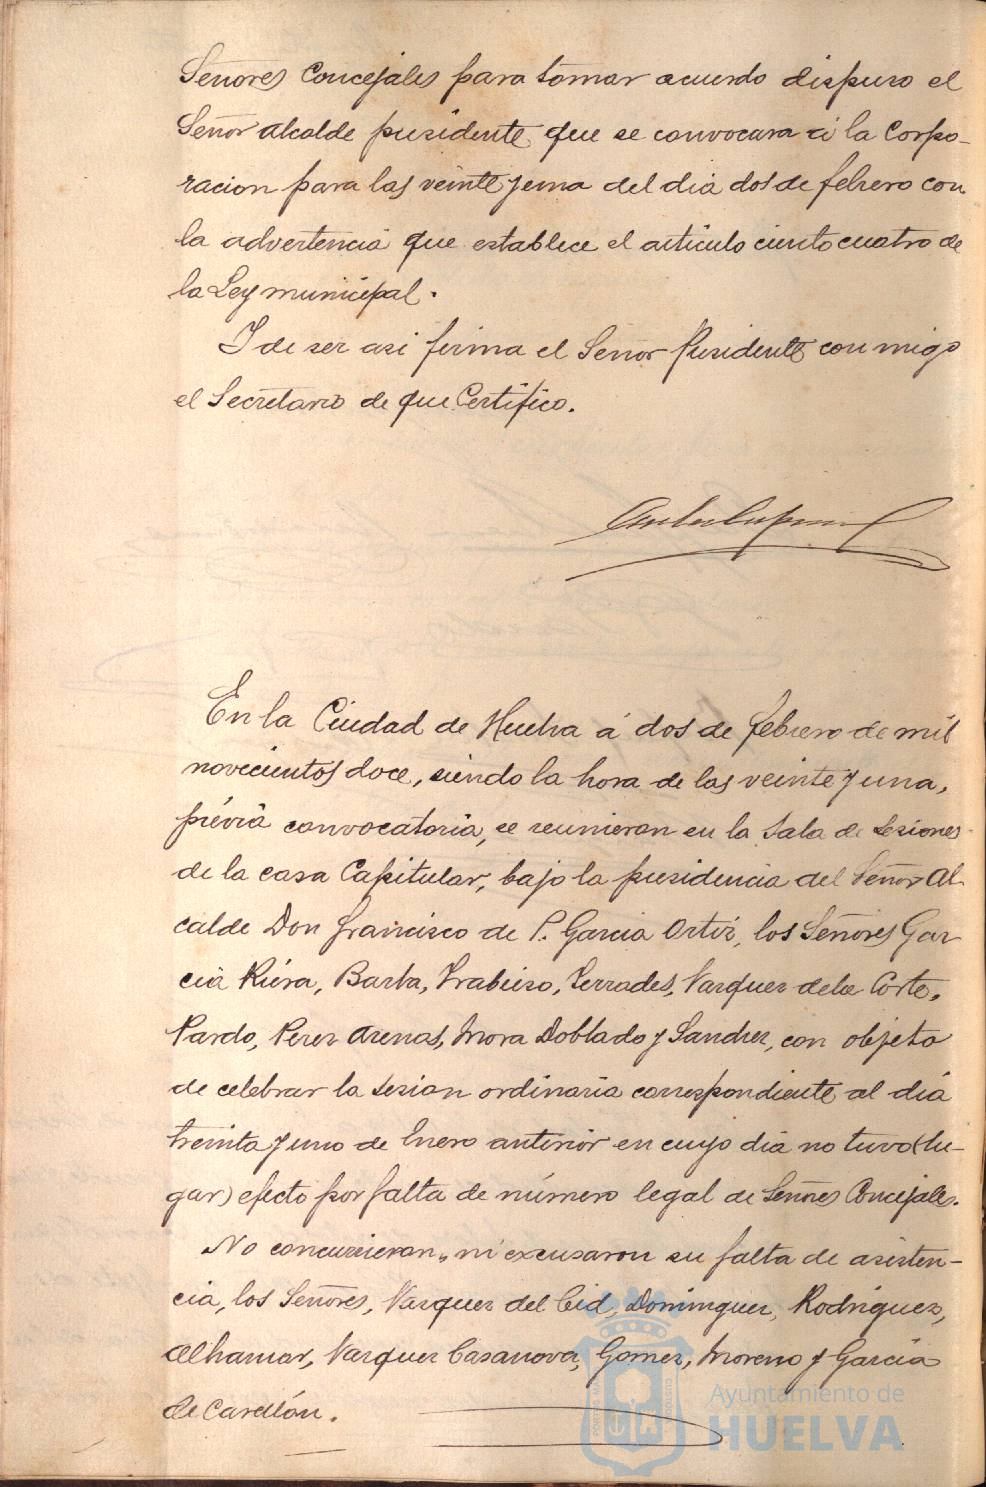 Señores Concejales para tomar acuerdo dispuso el
Señor Alcalde presidente que se convocara á la Corpo-
racion para las veinte y una del dia dos de febrero con
la advertencia que establece el articulo ciento cuatro de
la Ley municipal.
Y de ser asi firma el Señor Presidente con migo
el Secretario de que Certifico.
En la Ciudad de Huelva á dos de febrero de mil
novecientos doce, siendo la hora de las veinte y una,
prévia convocatoria, se reunieron en la Sala de Sesiones
de la casa Capitular, bajo la presidencia del Señor Al-
calde Don Francisco de P. Garcia Ortiz, los Señores Gar
cia Riera, Barba, Trabieso, Terrades, Vazquez de la Corte,
Pardo, Perez Arenas, Mora Doblado y Sanchez, con objeto
de celebrar la sesion ordinaria correspondiente al dia
treinta y uno de Enero anterior en cuyo dia no tuvo (lu-
gar) efecto por falta de número legal de Señores Concejales.
No concurrieron, ni excusaron su falta de asisten-
cia, los Señores, Vazquez del Cid, Dominguez, Rodriguez,
Alhamar, Vazquez Casanova, Gomez, Moreno y Garcia
de
Ayuntamiento de
HUELVA